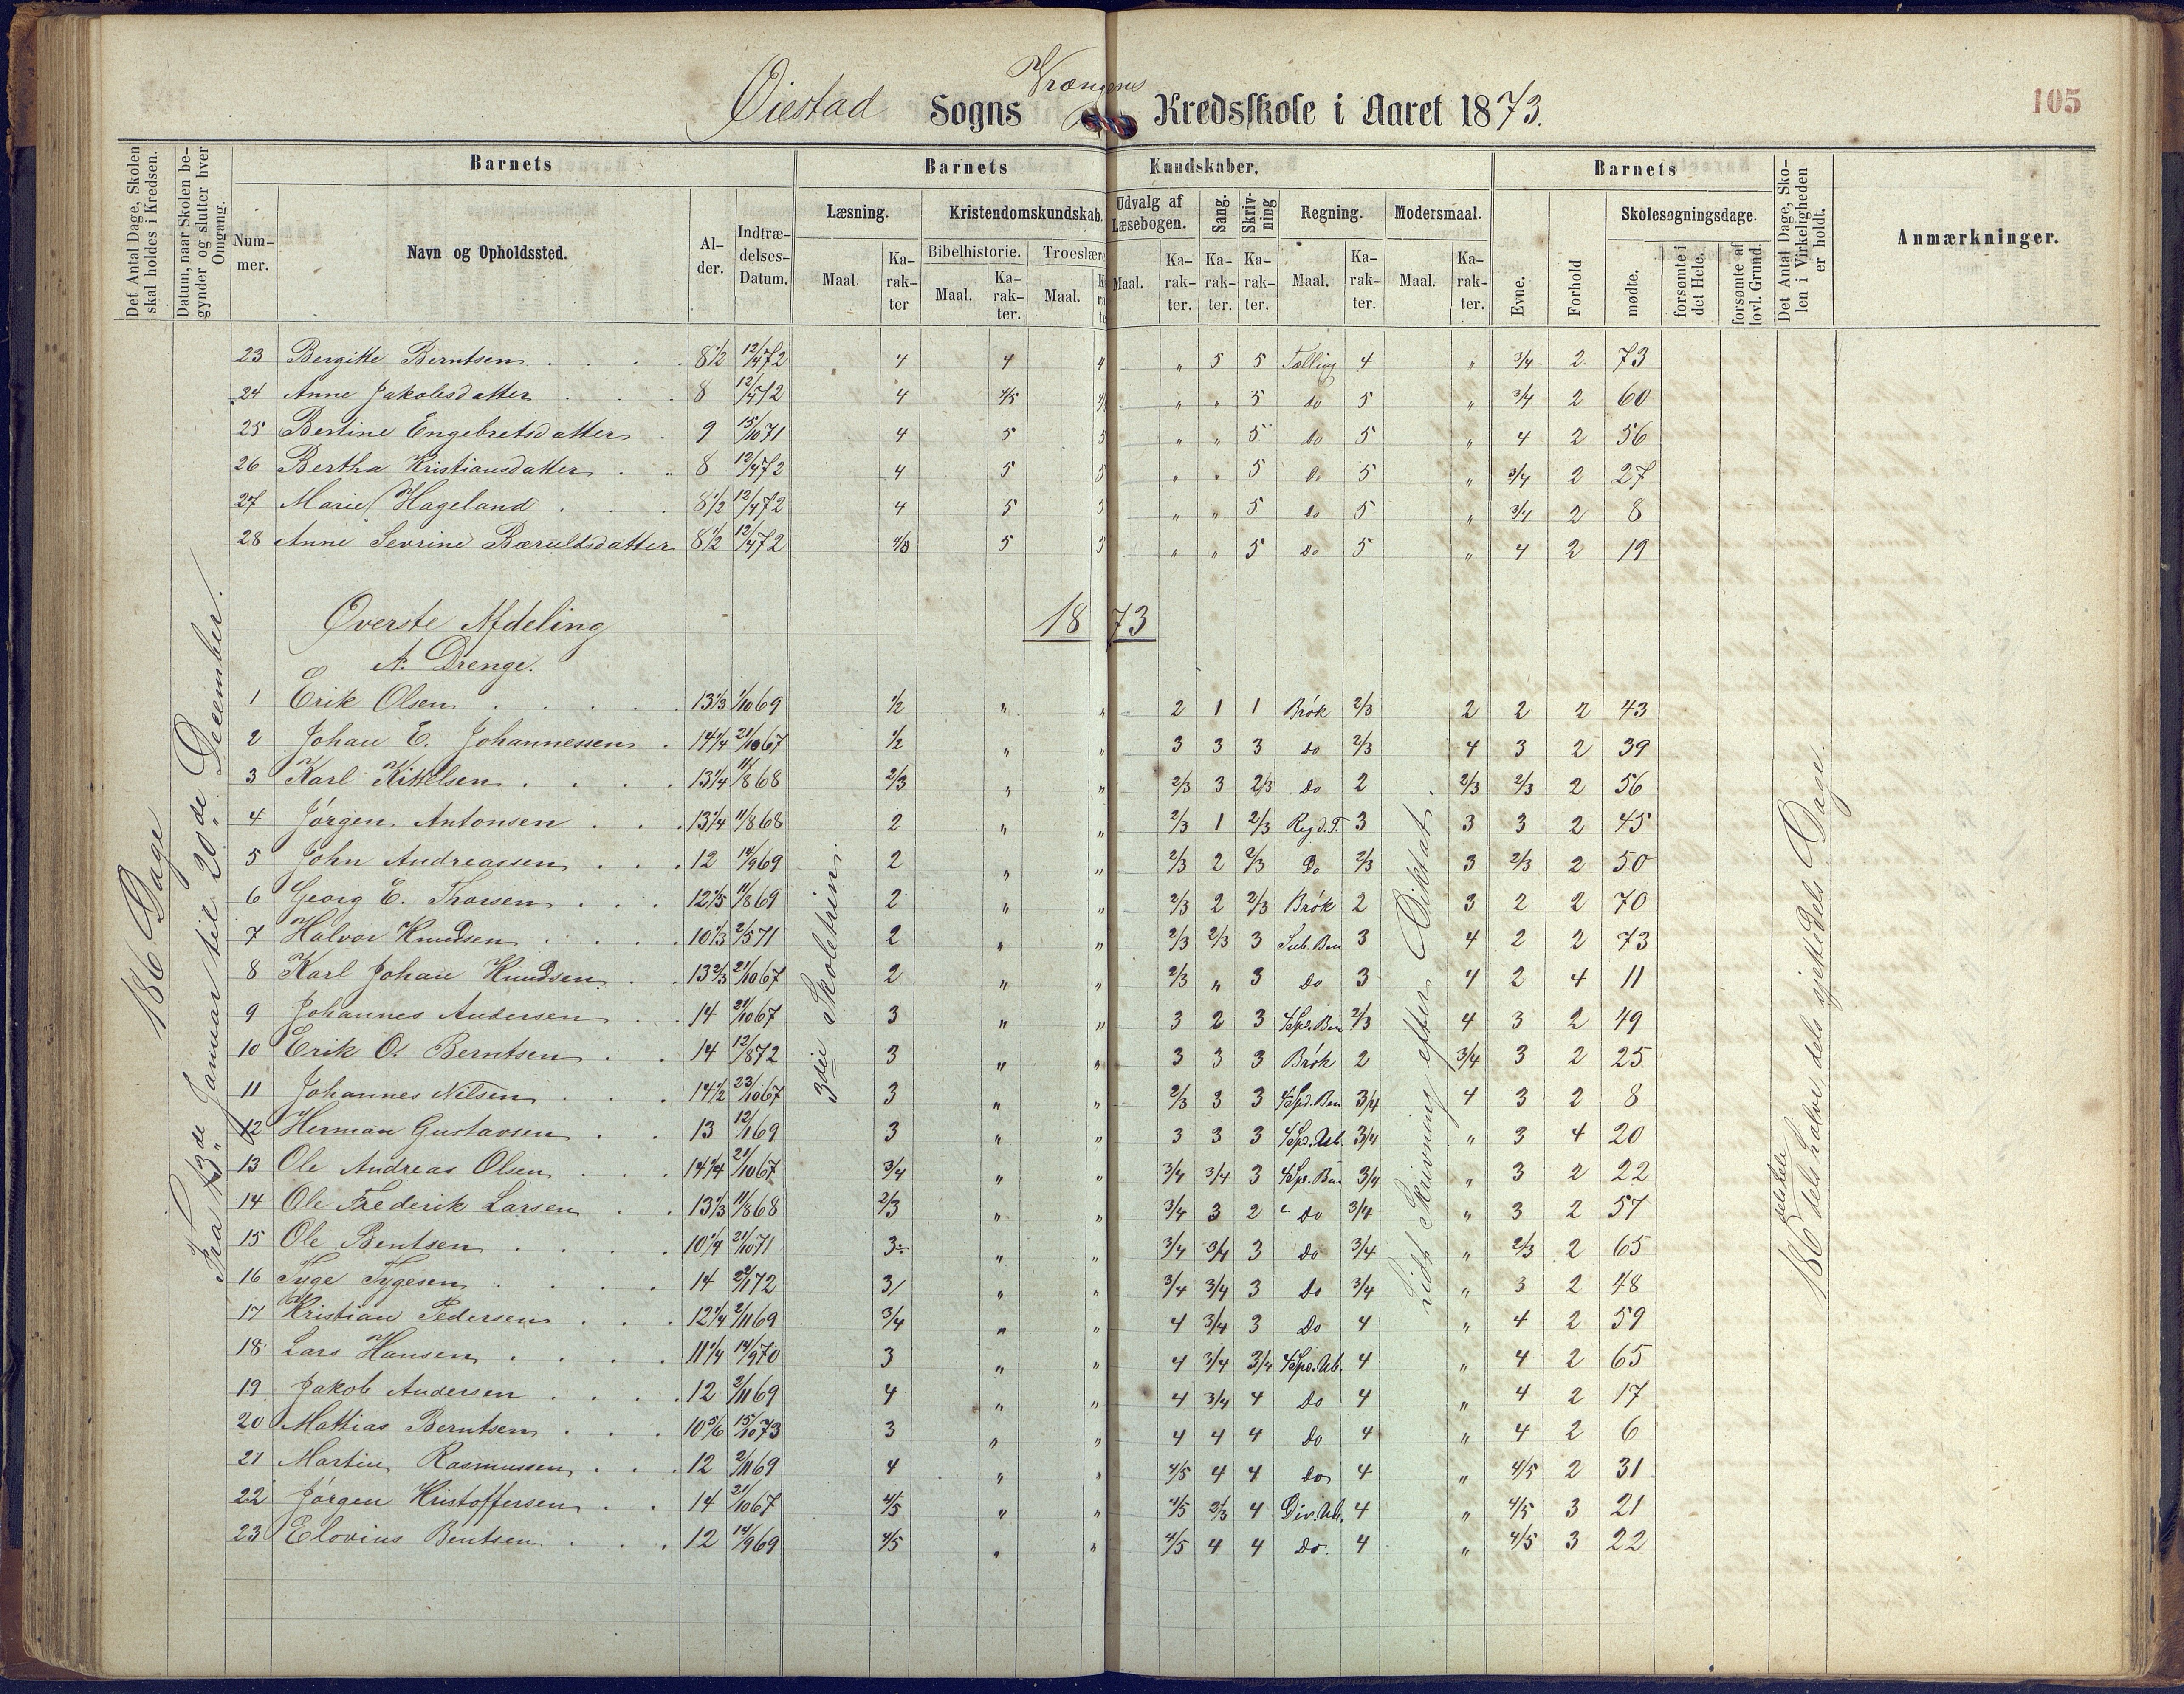 105
Øiestad Sogns Vrængens Kredsskole i Aaret 1873.
Det Antal Dage, Skolen skal holdes i Kredsen.
Datum, naar Skolen begynder og slutter hver Omgang.
Barnets
Nummer.
Navn og Opholdssted.
Alder.
Indtrædelses-Datum.
Barnets Kundskaber.
Læsning.
Maal
Karakter
Kristendomskundskab.
Bibelhistorie.
Maal.
Karakter.
Troeslære
Maal.
Udvalg af Læsebogen.
Maal.
Karakter.
Sang.
Karakter.
Skrivning
Karakter.
Regning.
Maal.
Karakter.
Modersmaal.
Maal.
Karakter.
Barnets
Evne.
Forhold
Skolesøgningsdage.
mødte.
forsømte i det Hele.
forsømte af lovl. Grund.
Det Antal Dage, Skolen i Virkeligheden er holdt.
Anmærkninger.
23 Bergitte Berntsen 8½ 12/4 72 4 4 4 " 5 5 Tælling 4 " 3/4 2 73
24 Anne Jakobsdatter 8 12/4 72 4 4/5 " " 5 do 5 " 3/4 2 60
25 Bertine Engebretsdatter 9 15/10 71 4 5 5 " " 5 do 5 " 4 2 56
26 Bertha Kristiansdatter 8 12/4 72 4 5 5 " " 5 do 5 " 3/4 2 27
27 Marie Hageland 8½ 12/4 72 4 5 5 " " 5 do 5 " 3/4 2 8
28 Anne Sevrine Bæruldsdatter 8½ 12/4 72 5 5 " " 5 do 5 " 4 2 19
Øverste Afdeling 1873
A. Drenge.
1 Erik Olsen 13⅓ 1/10 69 ½ " " 2 1 1 Brøk 2/3 2 2 2 43
2 Johan E. Johannessen 14¼ 21/10 67 ½ " " 3 3 3 do 2/3 4 3 2 39
3 Karl Kittelsen 13¼ 11/8 68 2/3 " " 2/3 3 2/3 do 2 2/3 2/3 2 56
4 Jørgen Antonsen 13¼ 11/8 68 2 " " 2/3 1 2/3 Reg d. T. 3 3 3 2 45
5 John Andreassen 12 14/9 69 2 " " 2/3 2 2/3 Do 2/3 3 2/3 2 50
6 Georg E. Thorsen 12 11/8 69 2 " " 2/3 2 2/3 Brøk 2 3 2 2 70
7 Halvor Knudsen 10⅓ 2/5 71 2 " " 2/3 2/3 3 Sub. Ben 3 4 2 2 73
8 Karl Johan Knudsen 13⅔ 21/10 67 2 " " 2/3 " 3 do 3 4 2 4 11
9 Johannes Andersen 14 21/10 67 3 " " 3 2 3 4 Spd. Ben 2/3 4 3 2 49
10 Erik O. Berntsen 14 12/8 72 3 " " 3 3 3 Brøk 2 3/4 3 2 25
11 Johannes Nilsen 14½ 23/10 67 3 " " 2/3 3 3 4 Spd. Ben 3/4 4 3 2 8
12 Herman Gustavsen 13 12/1 69 3 " " 3 3 3 4 Sp. Ub. 3/4 " 3 4 20
13 Ole Andreas Olsen 14¼ 21/10 67 3/4 " " 3/4 3/4 3 4 Sp. Ben 3/4 " 3 2 22
14 Ole Frederik Larsen 13⅓ 11/8 68 2/3 " " 3/4 3 2 Do 3/4 " 3 2 57
15 Ole Bentsen 10¼ 21/10 71 3 " " 3/4 3/4 3 do 3/4 " 2/3 2 65
16 Tyge Tygesen 14 2/1 72 3 " " 3/4 3/4 3 do 3/4 " 3 2 48
17 Kristian Pedersen 12¼ 2/11 69 3/4 " " 4 3/4 3 do 4 " 4 2 59
18 Lars Hansen 11¼ 14/9 70 3 " " 4 3/4 3/4 4 Spe. Ub. 4 " 4 2 65
19 Jakob Andersen 12 2/11 69 4 " " 4 3/4 4 do 4 " 4 2 17
20 Mattias Berntsen 10⅚ 15/10 73 3 " " 4 4 4 do 4 " 4 2 6
21 Martin Rasmussen 12 2/11 69 4 " " 4/5 4 4 do 4 " 4/5 2 31
22 Jørgen Kristoffersen 14 21/10 67 4/5 " " 4/5 2/3 4 Div. Ub. 4 " 4/5 3 21
23 Elovius Bentsen 12 14/9 69 4/5 " " 4/5 4 4 do. 4 " 4/5 3 22
186 Dage
Fra 13de Januar til 20de December.
3die Skoletrin.
Lidt Skrivning efter Diktat.
186 dels hele dels halve dels fjerdedels Dage.